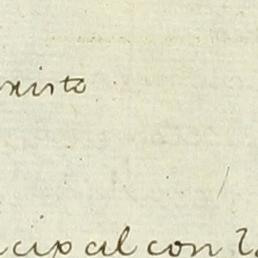 nristo
ncipal con 2